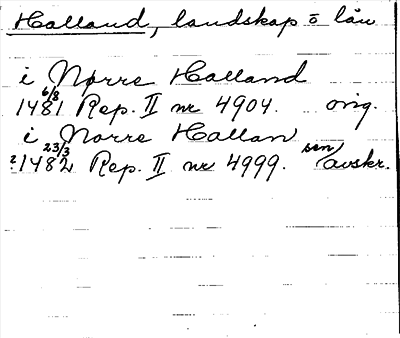 Halland, landskap o län
i Nørre Halland
1481 6/8 Rep. II nr 4904. orig.
i Norre Hallan
?1482 23/3 Rep. II nr 4999. sen avskr.